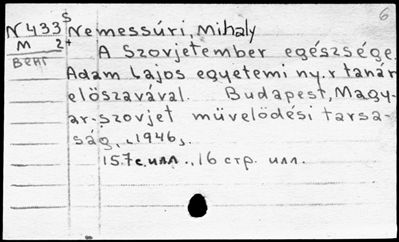 6
N433 S Nemessúri, Mihaly
M 2+ A Szovjetember egészsége.
Венг Adam Lajos egyetemi ny.r tanár
előszavával. Budapest, Magy-
ar-szovjet müvelődési tarsa-
ság, [1946].
157с. илл., 16 стр. илл.